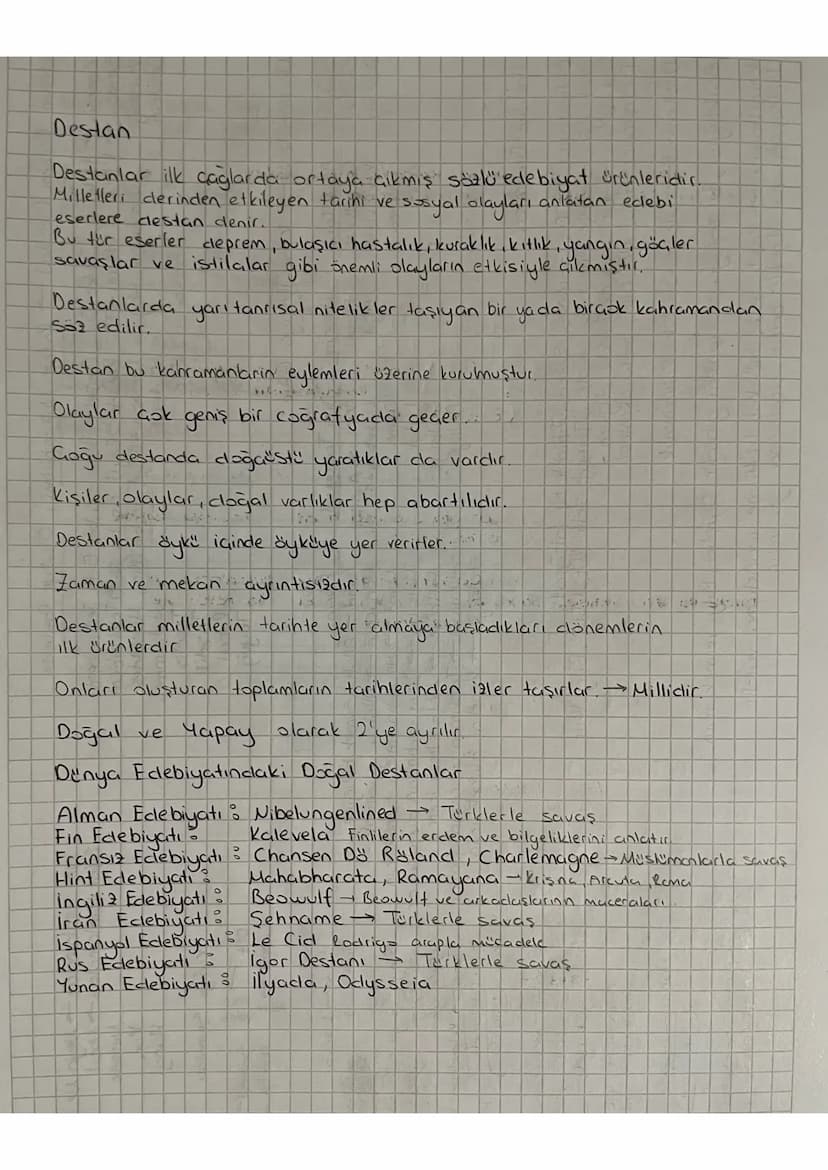 Destan
Destanlar ilk çağlarda ortaya çıkmış sözlü edebiyat ürünleridir.
Milletleri derinden etkileyen tarihi ve sosyal olayları anlatan edebi
eserlere destan denir.
Bu tür eserler deprem, bulaşıcı hastalık, kuraklık, kıtlık, yangın, göçler
savaşlar ve istilalar gibi önemli olayların etkisiyle çıkmıştır.
Destanlarda yarı tanrısal nitelikler taşıyan bir yada birçok kahramandan
söz edilir.
Destan bu kahramanların eylemleri üzerine kurulmuştur.
Olaylar çok geniş bir coğrafyada geçer.
Çoğu destanda doğaüstü yaratıklar da vardır.
Kişiler, olaylar, doğal varlıklar hep abartılıdır.
Destanlar öykü içinde öyküye yer verirler.
Zaman ve mekan ayrıntısızdır.
Destanlar milletlerin tarihte yer almaya başladıkları dönemlerin
ilk ürünlerdir
Onları oluşturan toplamların tarihlerinden izler taşırlar. → Millidir.
Doğal ve Yapay olarak 2'ye ayrılır.
Dünya Edebiyatındaki Doğal Destanlar
Alman Edebiyatı : Nibelungenlined → Türklerle savaş
Fin Edebiyatı : Kalevela Finlilerin erdem ve bilgeliklerini anlatır
Fransız Edebiyatı : Chansen Dö Röland, Charlemagne → Müslümanlarla savaş
Hint Edebiyatı : Mahabharata, Ramayana → Krişna, Arcuta, Rama
İngiliz Edebiyatı : Beowulf → Beowulf ve arkadaşlarının maceraları
İran Edebiyatı : Şehname → Türklerle savaş
İspanyol Edebiyatı : Le Cid Rodrigo arapla mücadele
Rus Edebiyatı : İgor Destanı → Türklerle savaş
Yunan Edebiyatı : İlyada, Odysseia